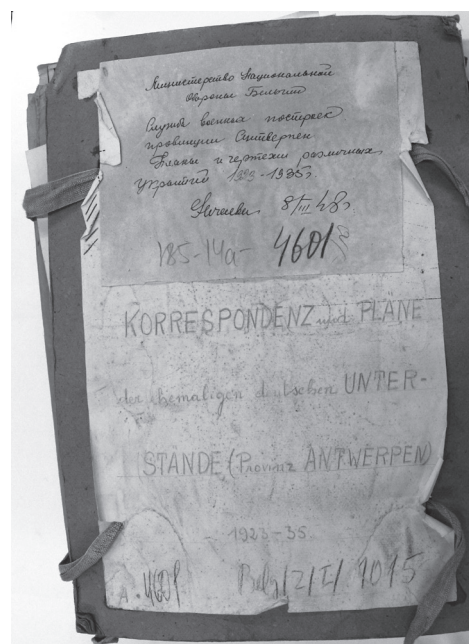 Министерство Национальной
Обороны Бельгии
Служба военных построек
провинции Антверпен
Планы и чертежи различных
укреплений 1923-1935г
8/III 48г
185-14а- 4601
KORRESPONDENZ und PLÄNE
der ehemaligen deutschen UNTER-
STANDE (Provinz ANTWERPEN)
1923-35
A 4601 Belg/2/I/ 1015